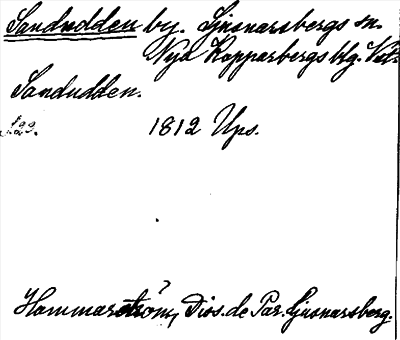 Sandudden by. Ljusnarsbergs sn.
Nya Kopparbergs blg. Väst.
Sandudden.
s. 23. 1812 Ups.
Hammarström, Diss. de Par. Ljusnarsberg.